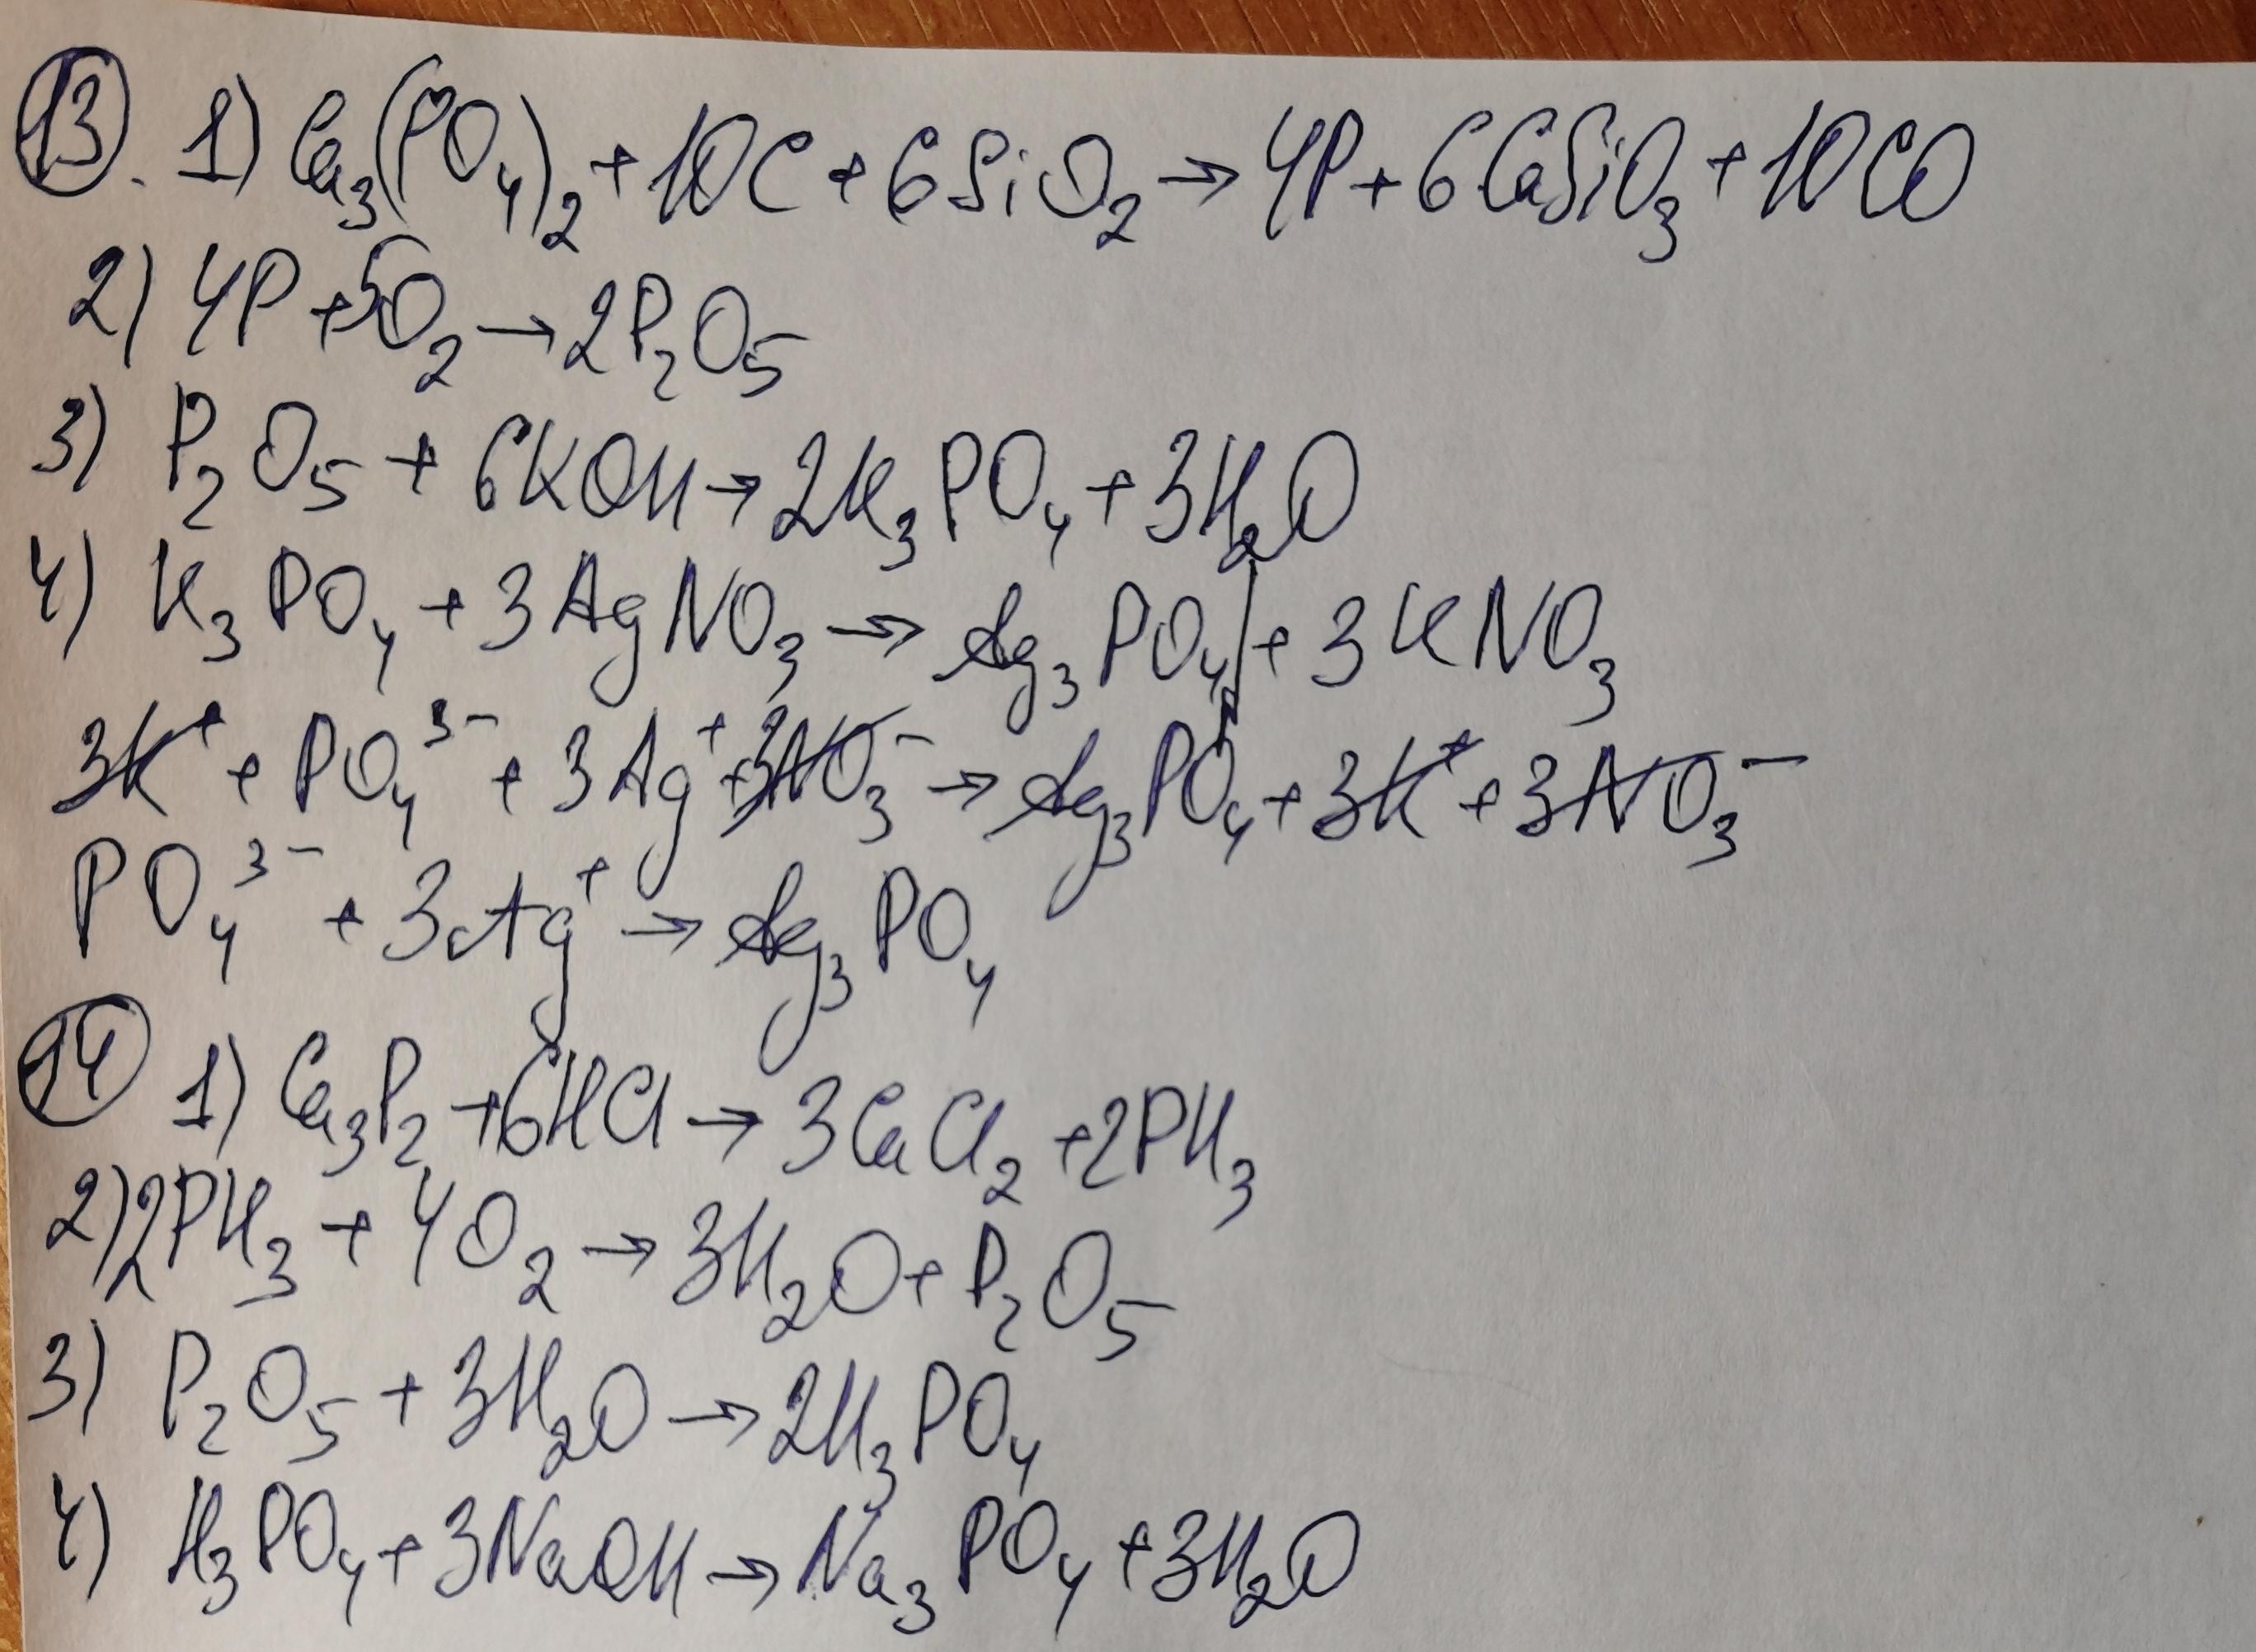 13. 1) Ca₃(PO₄)₂ + 10C + 6SiO₂ → 4P + 6CaSiO₃ + 10CO
2) 4P + 5O₂ → 2P₂O₅
3) P₂O₅ + 6KOH → 2K₃PO₄ + 3H₂O
4) K₃PO₄ + 3AgNO₃ → Ag₃PO₄↓ + 3KNO₃
3K⁺ + PO₄³⁻ + 3Ag⁺ + 3NO₃⁻ → Ag₃PO₄ + 3K⁺ + 3NO₃⁻
PO₄³⁻ + 3Ag⁺ → Ag₃PO₄
14 1) Ca₃P₂ + 6HCl → 3CaCl₂ + 2PH₃
2) 2PH₃ + 4O₂ → 3H₂O + P₂O₅
3) P₂O₅ + 3H₂O → 2H₃PO₄
4) H₃PO₄ + 3NaOH → Na₃PO₄ + 3H₂O